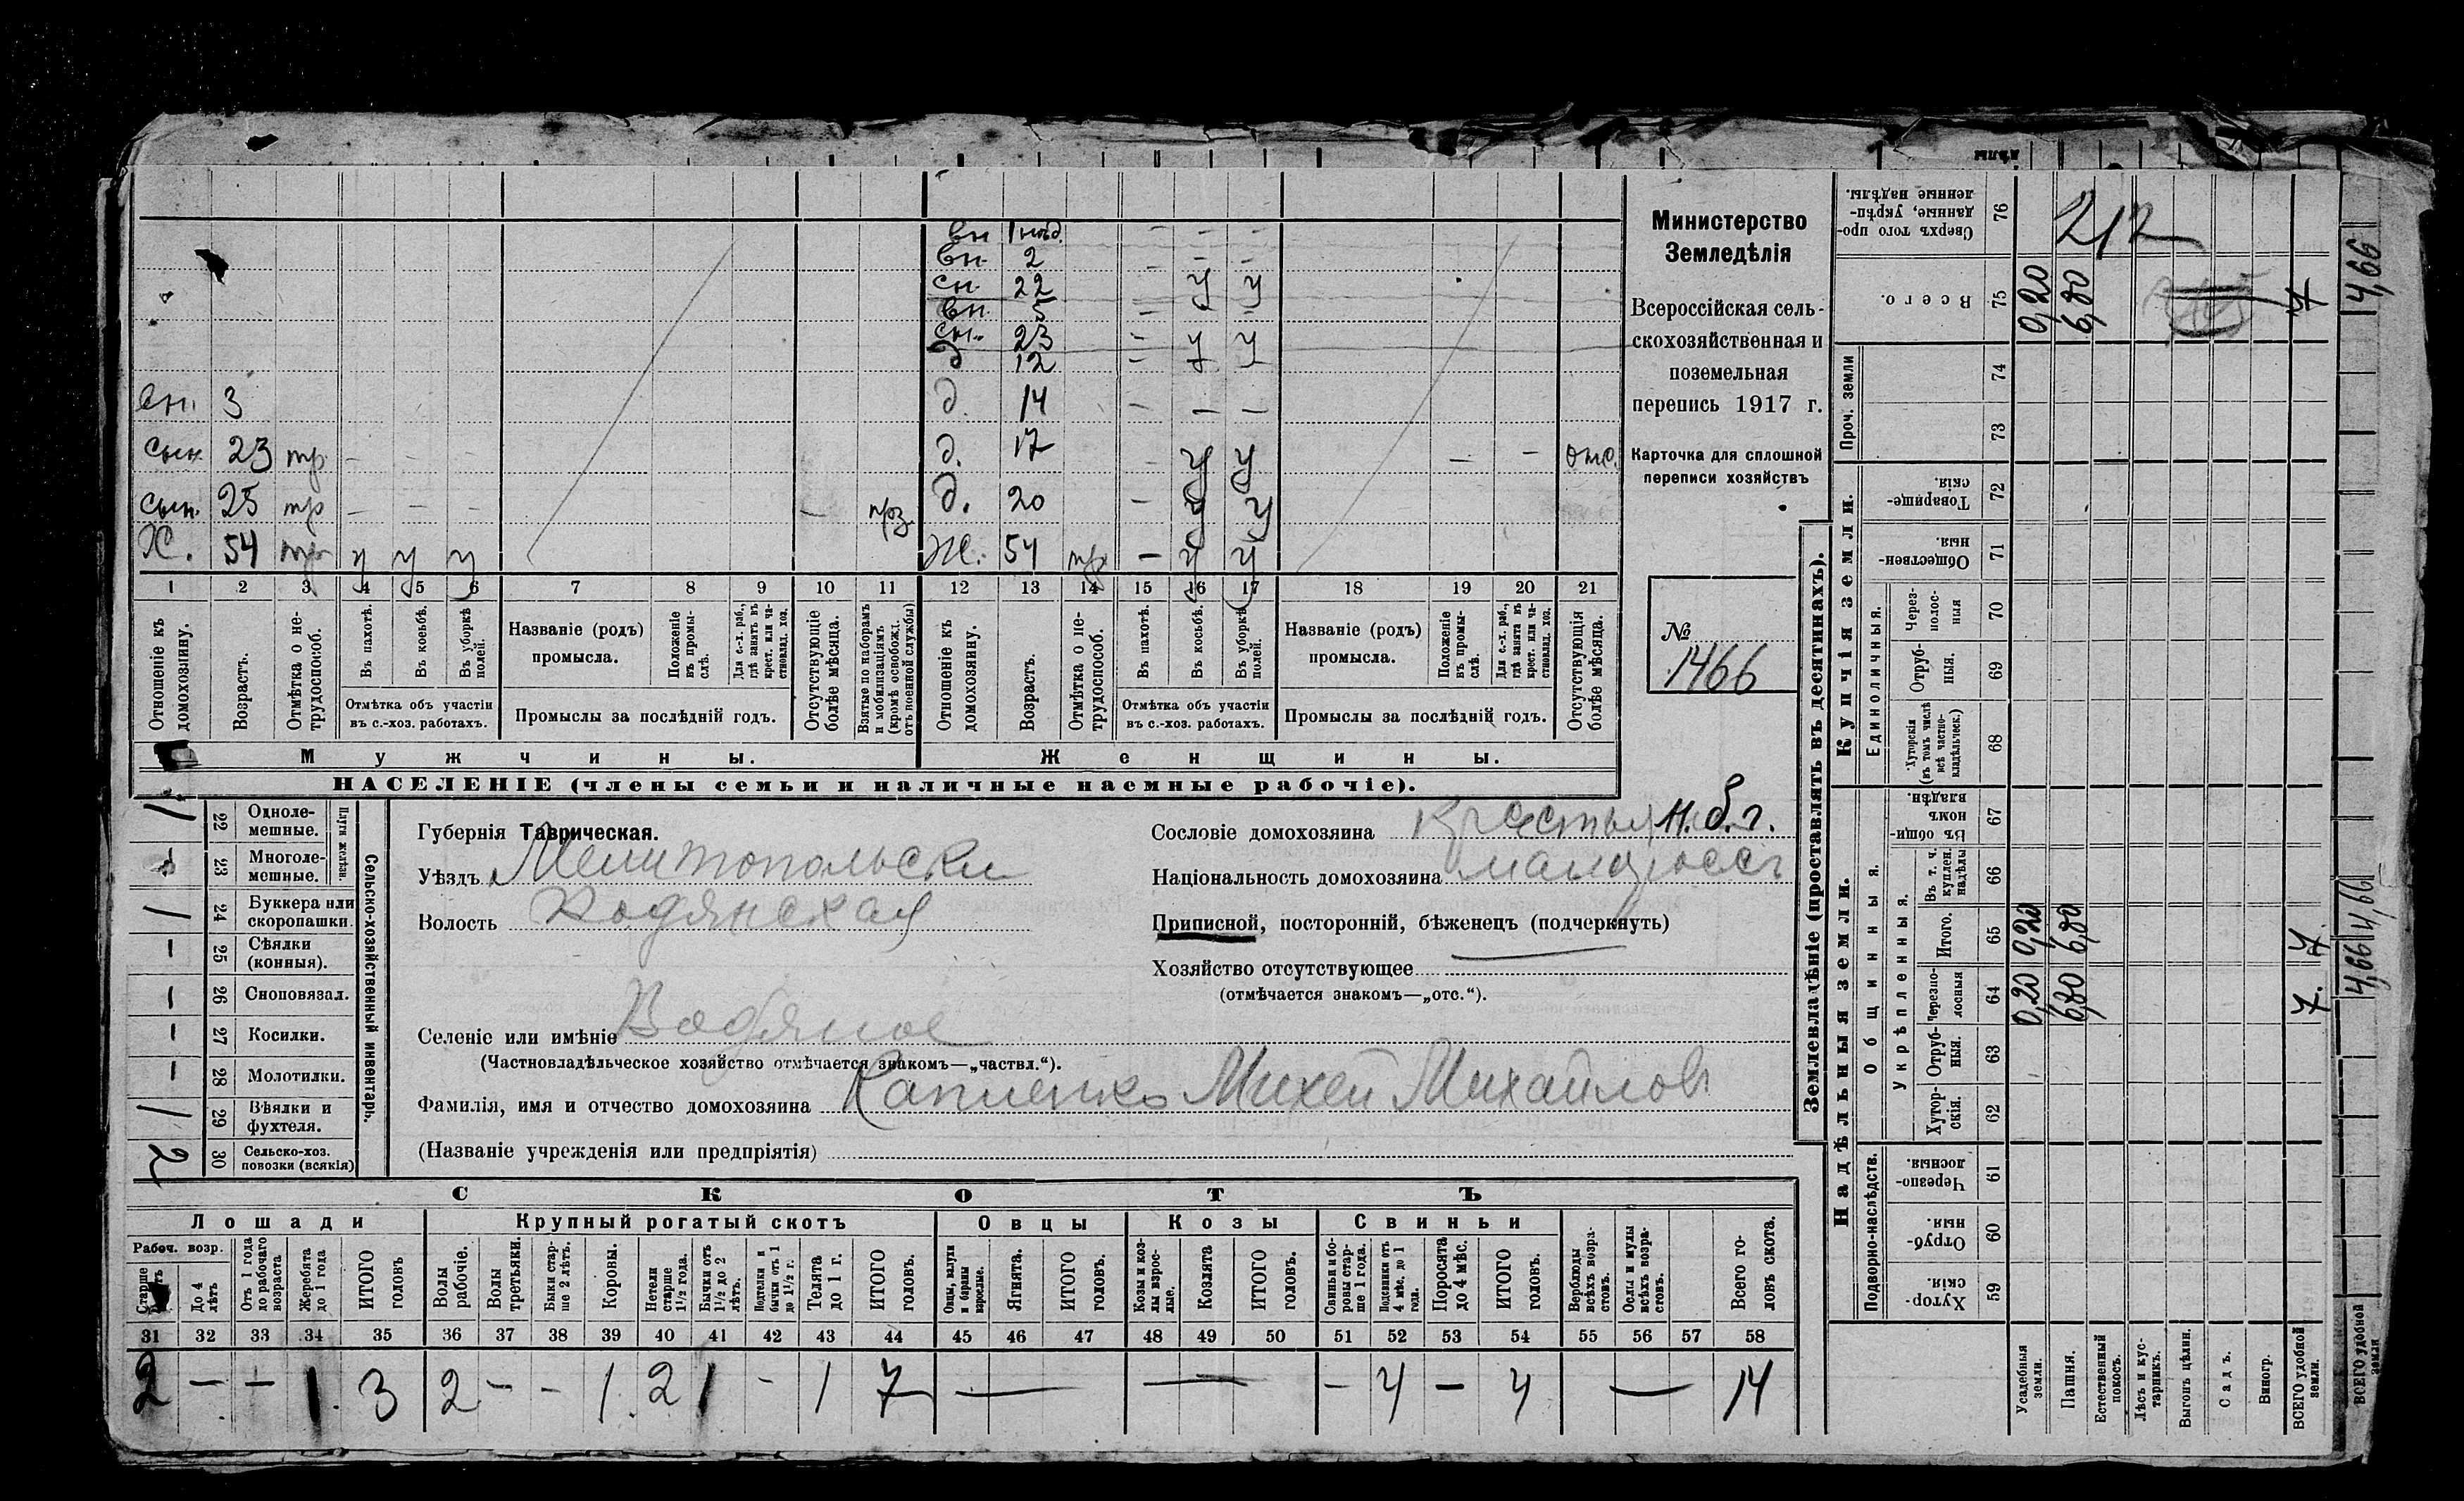 Министерство
Земледѣлія
Всероссійская сель-
скохозяйственная и
поземельная
перепись 1917 г.
Карточка для сплошной
переписи хозяйствъ
№
1466
вн 1 нѣд.
вн. 2
сн. 22 у у
вн. 5
сн. 23 у у
д 12
вн. 3 д. 14 — — —
сын. 23 тр. — — — д. 17 — у у — — отс.
сын. 25 тр — — — — д. 20 — у у
Х. 54 тр у у у Ж. 54 тр — у у
1 2 3 4 5 6 7 8 9 10 11 12 13 14 15 16 17 18 19 20 21
Отношеніе къ домохозяину.
Возрастъ.
Отмѣтка о не-трудоспособ.
Въ пахотѣ.
Въ косьбѣ.
Въ уборкѣ полей.
Отмѣтка объ участіи
въ с.-хоз. работахъ.
Названіе (родъ)
промысла.
Положеніе въ промы-слѣ.
Для с.-х. раб., гдѣ занятъ въ крест. или ча-стновлад. хоз.
Промыслы за послѣдній годъ.
Отсутствующіе болѣе мѣсяца.
Взятые по наборамъ и мобилизаціямъ (кромѣ освобожд. отъ военной службы)
Отношеніе къ домохозяину.
Возрастъ.
Отмѣтка о не-трудоспособ.
Въ пахотѣ.
Въ косьбѣ.
Въ уборкѣ полей.
Отмѣтка объ участіи
въ с.-хоз. работахъ.
Названіе (родъ)
промысла.
Положеніе въ промы-слѣ.
Для с.-х. раб., гдѣ занята въ крест. или ча-стновлад. хоз.
Промыслы за послѣдній годъ.
Отсутствующія болѣе мѣсяца.
Мужчины. Женщины.
НАСЕЛЕНІЕ (члены семьи и наличные наемные рабочіе).
Сельско-хозяйственный инвентарь.
Плуги желѣзн.
1 22 Одноле-мешные.
23 Многоле-мешные.
1 24 Буккера или скоропашки.
— 25 Сѣялки (конныя).
— 26 Сноповязал.
— 27 Косилки.
— 28 Молотилки.
1 29 Вѣялки и фухтеля.
2 30 Сельско-хоз. повозки (всякія)
Губернія Таврическая.
Уѣздъ Мелитопольски
Волость Водянская
Селеніе или имѣніе Водяное
(Частновладѣльческое хозяйство отмѣчается знакомъ—„частвл.“).
Фамилія, имя и отчество домохозяина Капленко Михей Михайлов
(Названіе учрежденія или предпріятія)
Сословіе домохозяина н.б.г.
Національность домохозяина малоросъ
Приписной, посторонній, бѣженецъ (подчеркнуть)
Хозяйство отсутствующее
(отмѣчается знакомъ—„отс.“).
СКОТЪ
Лошади Крупный рогатый скотъ Овцы Козы Свиньи
Рабоч. возр.
Старше
До 4 лѣтъ
Отъ 1 года до рабочаго возраста
Жеребята до 1 года
ИТОГО головъ
Волы рабочіе.
Волы третьяки.
Быки стар-ше 2 лѣтъ.
Коровы.
Нетели старше 1½ года.
Бычки отъ 1½ до 2 лѣтъ.
Подтелки и бычки отъ 1 до 1½ г.
Телята до 1 г.
ИТОГО головъ.
Овцы, валухи и бараны взрослые.
Ягнята.
ИТОГО головъ.
Козы и коз-лы взрос-лые.
Козлята
ИТОГО головъ.
Свиньи и бо-ровы стар-ше 1 года.
Подсвинки отъ 4 мѣс. до 1 года.
Поросята до 4 мѣс.
ИТОГО головъ.
Верблюды всѣхъ возра-стовъ.
Ослы и мулы всѣхъ возра-стовъ.
Всего го-ловъ скота.
31 32 33 34 35 36 37 38 39 40 41 42 43 44 45 46 47 48 49 50 51 52 53 54 55 56 57 58
2 — — 1 3 2 — — 1 2 1 — 1 7 — — — 4 — 4 — 14
Землевладѣніе (проставлять въ десятинахъ).
Надѣльныя земли. Купчія земли.
Подворно-наслѣдств.
Общинныя.
Укрѣпленныя.
Единоличныя.
Проч. земли
Хутор-скія. 59
Отруб-ныя. 60
Черезпо-лосныя. 61
Хутор-скія. 62
Отруб-ныя. 63
Черезпо-лосныя 64 0,20 6,80 7.
Итого. 65 0,20 6,80 7.
Въ т. ч. куплен. надѣлы 66
Въ общи-номъ владѣн. 67
Хуторскія (въ томъ числѣ всѣ частно-владѣльческ.) 68
Отруб-ныя. 69
Через-полос-ныя 70
Обществен-ныя. 71
Товарище-скія. 72
73
74
Всего. 75 0,20 6,80 7
Сверхъ того про-данные, укрѣп-ленные надѣлы. 76
212
Усадебныя земли.
Пашня.
Естественный покосъ.
Лѣсъ и кус-тарникъ.
Выгонъ цѣлин.
Садъ.
Виногр.
ВСЕГО удобной земли.
ВСЕГО удобной земли
4,66
4,66
4,66